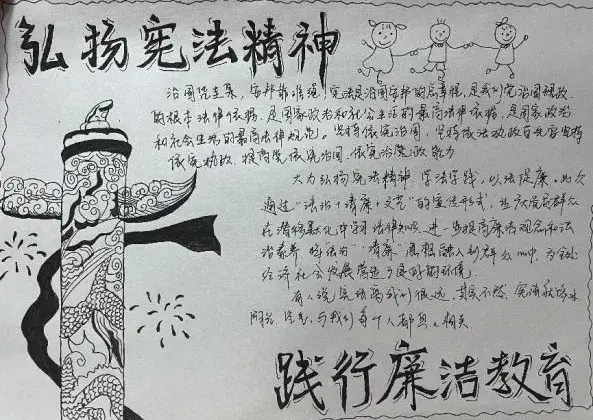 弘扬宪法精神
治国凭圭臬，安邦靠准绳！宪法是治国安邦的总章程，是我们党治国理政
的根本法律依据，是国家政治和社会生活的最高法律依据，是国家政治
和社会生活的最高法律规范。坚持依宪治国，坚持依法执政首先要坚持
依宪执政，提高党依宪治国、依宪治党政能力
大力弘扬宪法精神 学法学践，以法促廉。此次
通过“法治+清廉+文艺”的宣传形式，
在潜移默化中学习法律知识，进一步提高廉洁观念和法
治素养 将法治“清廉”思想融入到群众心中，为
经济社会发展营造了良好的环境。
有人说宪法离我们很远，其实不然，宪法就像水
阳光、空气，与我们每个人都息息相关
践行廉洁教育